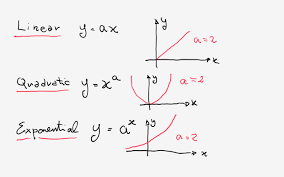 Linear y = ax y a = 2 x
Quadratic y = x^a y a = 2 x
Exponential y = a^x y a = 2 x